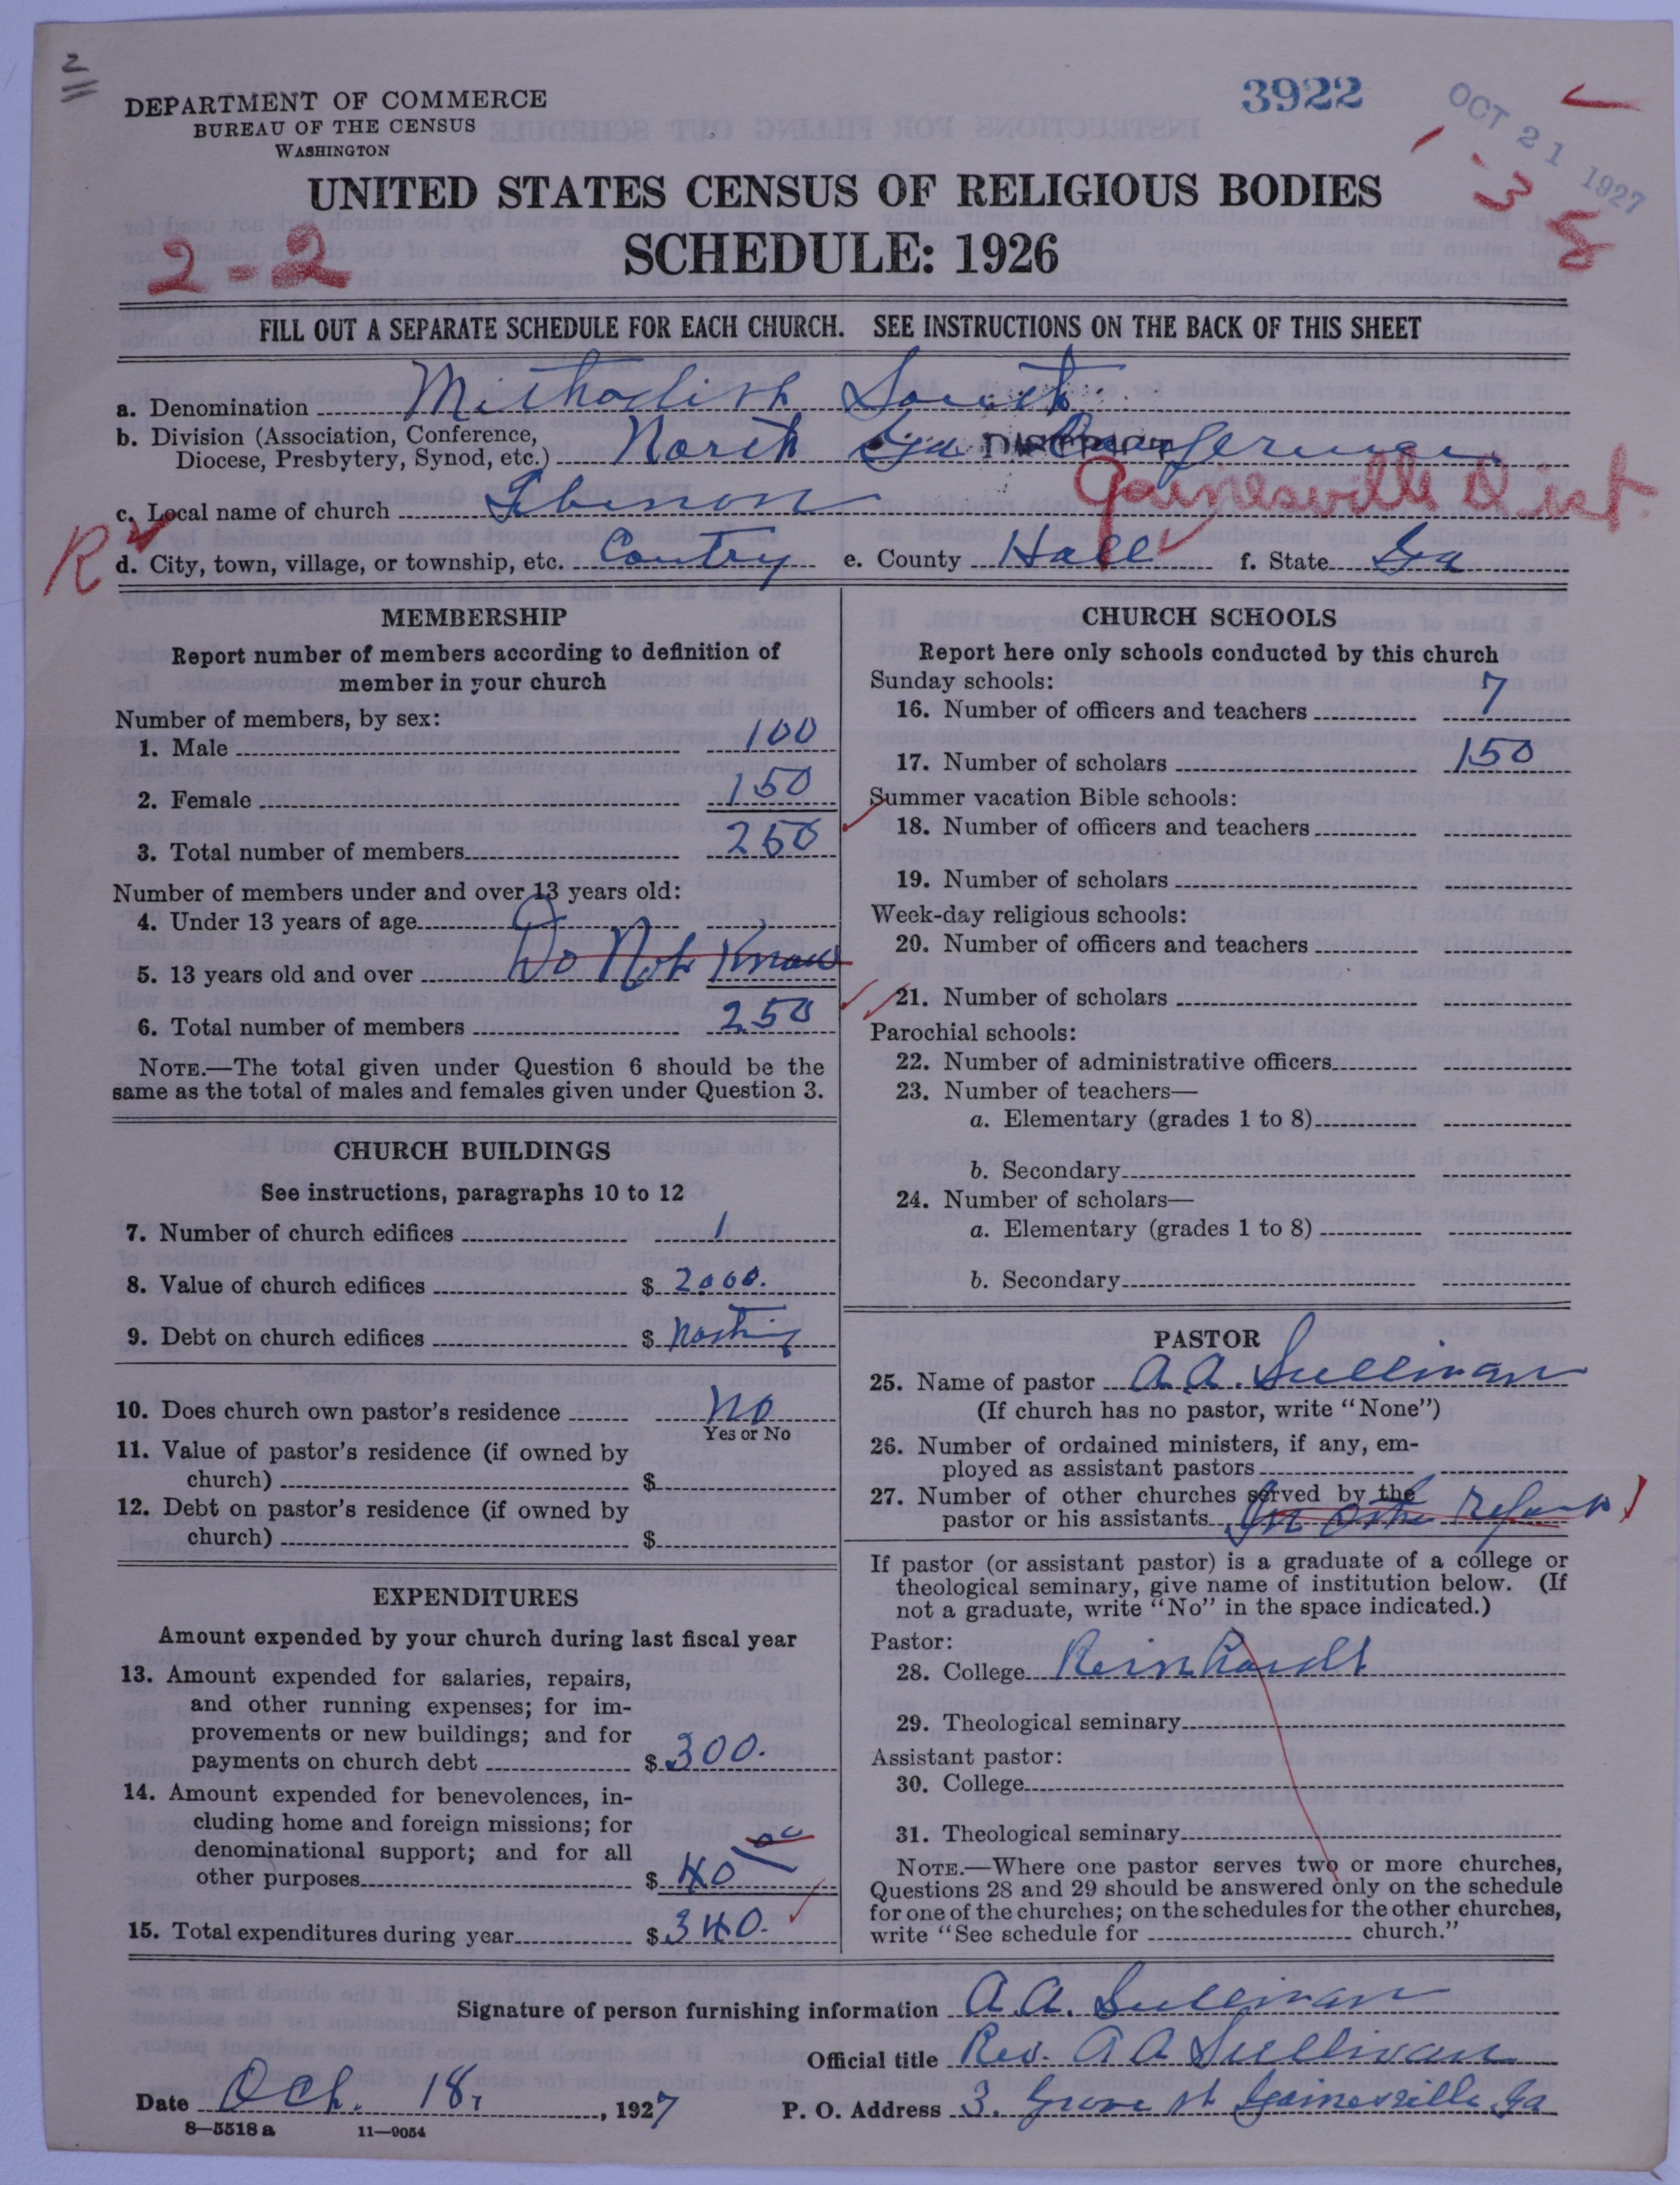 2
DEPARTMENT OF COMMERCE
BUREAU OF THE CENSUS
WASHINGTON
3922
OCT 21 1927
UNITED STATES CENSUS OF RELIGIOUS BODIES
SCHEDULE: 1926
2-2
3
8
FILL OUT A SEPARATE SCHEDULE FOR EACH CHURCH. SEE INSTRUCTIONS ON THE BACK OF THIS SHEET
a. Denomination Methodist South
b. Division (Association, Conference, Diocese, Presbytery, Synod, etc.) North Ga Conference
Gainesville Dist.
c. Local name of church Lebenon
R
d. City, town, village, or township, etc. Contry e. County Hall f. State Ga
MEMBERSHIP
Report number of members according to definition of
member in your church
Number of members, by sex:
1. Male 100
2. Female 150
3. Total number of members 250
Number of members under and over 13 years old:
4. Under 13 years of age
5. 13 years old and over Do Not Know
6. Total number of members 250
NOTE.—The total given under Question 6 should be the
same as the total of males and females given under Question 3.
CHURCH BUILDINGS
See instructions, paragraphs 10 to 12
7. Number of church edifices 1
8. Value of church edifices $ 2000.
9. Debt on church edifices $ nothing
10. Does church own pastor's residence No
Yes or No
11. Value of pastor's residence (if owned by
church) $
12. Debt on pastor's residence (if owned by
church) $
EXPENDITURES
Amount expended by your church during last fiscal year
13. Amount expended for salaries, repairs,
and other running expenses; for im-
provements or new buildings; and for
payments on church debt $ 300.
14. Amount expended for benevolences, in-
cluding home and foreign missions; for
denominational support; and for all
other purposes $ 40 00
15. Total expenditures during year $ 340.
CHURCH SCHOOLS
Report here only schools conducted by this church
Sunday schools:
16. Number of officers and teachers 7
17. Number of scholars 150
Summer vacation Bible schools:
18. Number of officers and teachers
19. Number of scholars
Week-day religious schools:
20. Number of officers and teachers
21. Number of scholars
Parochial schools:
22. Number of administrative officers
23. Number of teachers—
a. Elementary (grades 1 to 8)
b. Secondary
24. Number of scholars—
a. Elementary (grades 1 to 8)
b. Secondary
PASTOR
25. Name of pastor A. A. Sullivan
(If church has no pastor, write "None")
26. Number of ordained ministers, if any, em-
ployed as assistant pastors
27. Number of other churches served by the
pastor or his assistants In other
If pastor (or assistant pastor) is a graduate of a college or
theological seminary, give name of institution below. (If
not a graduate, write "No" in the space indicated.)
Pastor:
28. College Reinhardt
29. Theological seminary
Assistant pastor:
30. College
31. Theological seminary
NOTE.—Where one pastor serves two or more churches,
Questions 28 and 29 should be answered only on the schedule
for one of the churches; on the schedules for the other churches,
write "See schedule for church."
Signature of person furnishing information A. A. Sullivan
Official title Rev. A A Sullivan
Date Oct. 18, 1927 P. O. Address 3. Grove st Gainesville, Ga
8—5518 a 11—9054